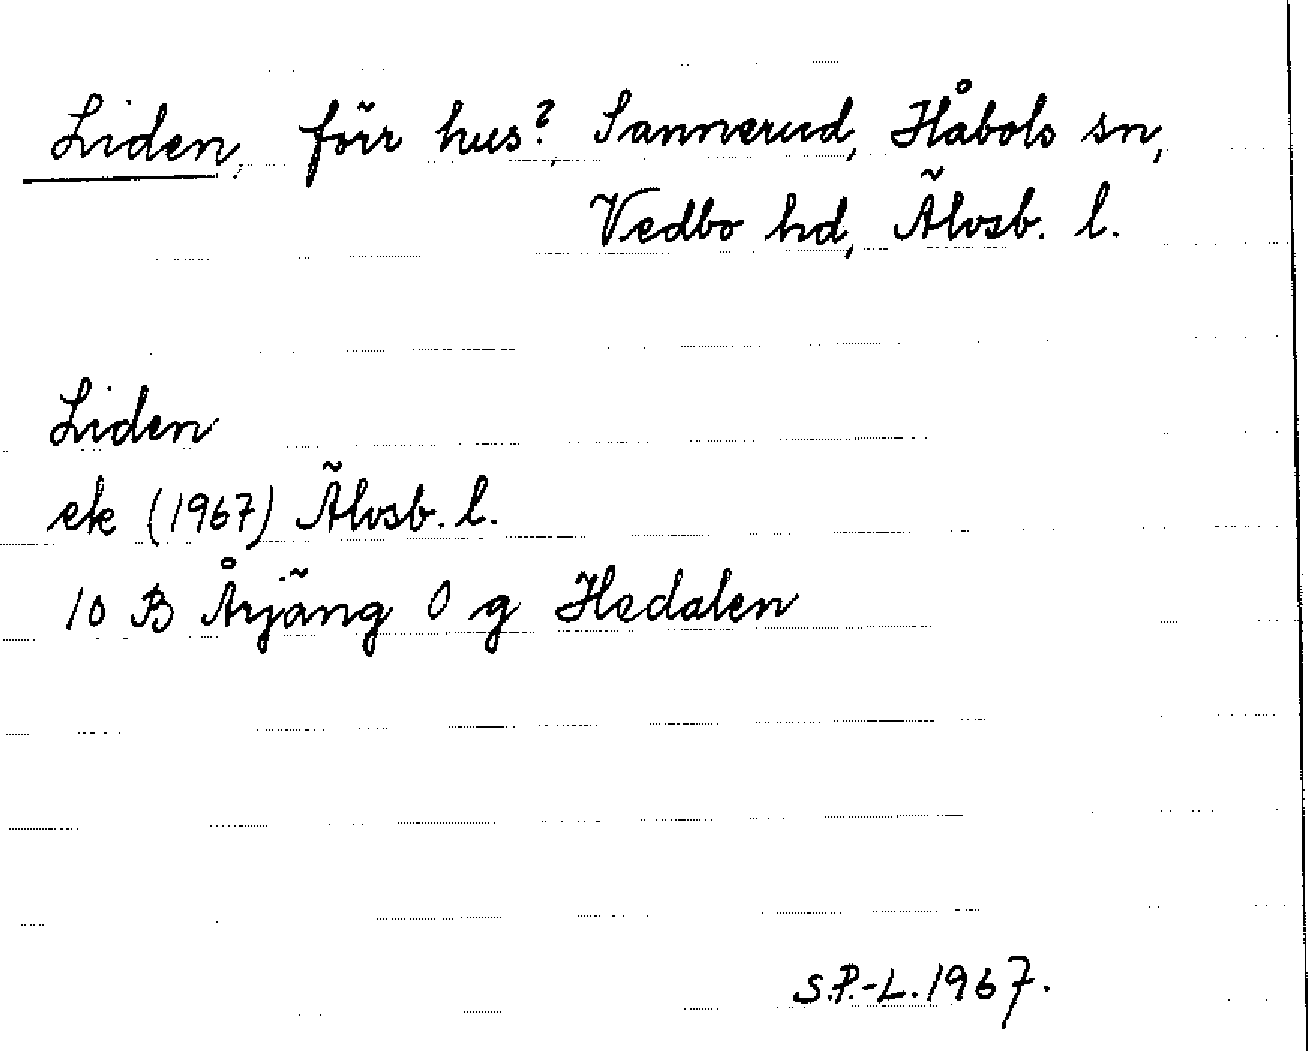 Liden, förr hus?, Sannerud, Håbols sn,
Vedbo hd, Älvsb. l.
Liden
ek (1967) Älvsb. l.
10 B Årjäng 0 g Hedalen
S.P.-L. 1967.